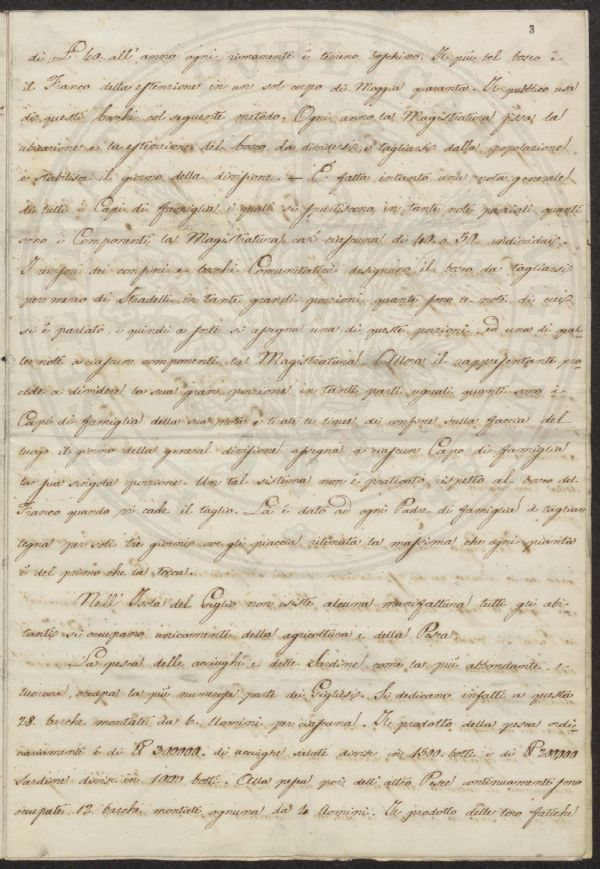 3
di L. 60. all' anno ogni rimanente è terreno boschivo. Il più bel bosco è
il Franco della estensione in un sol corpo di Moggia quaranta. Il pubblico usa
di questi boschi col seguente metodo. Ogni anno la Magistratura fissa la
ubicazione e la estensione del bosco da dividersi e tagliarsi dalla popolazione
e stabilisce il giorno della divisione. — È fatta intanto una nota generale
di tutti i Capi di famiglia i quali si spartiscono in tante note parziali quanti
sono i Componenti la Magistratura, così ciascuna di 40. o 50. individui.
I revisori dei confini e boschi Comunitativi disegnano il bosco da tagliarsi
per mezzo di Stradelli in tante grandi porzioni quante sono le note di cui
si è parlato, e quindi a sorte si assegna una di queste porzioni, ed una di que-
lle note a ciascun componente la Magistratura. Allora il rappresentante pro-
cede a dividere la sua gran porzione in tante parti uguali quanti sono i
Capi di famiglia della sua nota e tirate le linee di confine sulla faccia del
luogo il giorno della general divisione assegna a ciascun Capo di famiglia
la sua singola porzione. Un tal sistema non è praticato rispetto al bosco del
Franco quando vi cade il taglio. Là è dato ad ogni Padre di famiglia di tagliar
legna per soli tre giorni ove gli piaccia ritenuta la massima che ogni pianta
è del primo che la tocca.
Nell' Isola del Giglio non esiste alcuna manifattura tutti gli abi-
tanti si occupano unicamente della agricoltura e della Pesca.
La pesca delle acciughe e delle Sardine come la più abbondante, e
lucrosa, occupa la più numerosa parte dei Gigliesi. Si dedicano infatti a questa
28. barche montate da 6. Uomini per ciascuna. Il prodotto della pesca ordi-
nariamente è di 300000. di acciughe salate divise in 1500. botti e di 200000
Sardine divise in 1000 botti. Alla pesca poi dell' altro Pesce continuamente sono
occupate 12 barche montate ognuna da 4 Uomini. Il prodotto delle loro fatiche